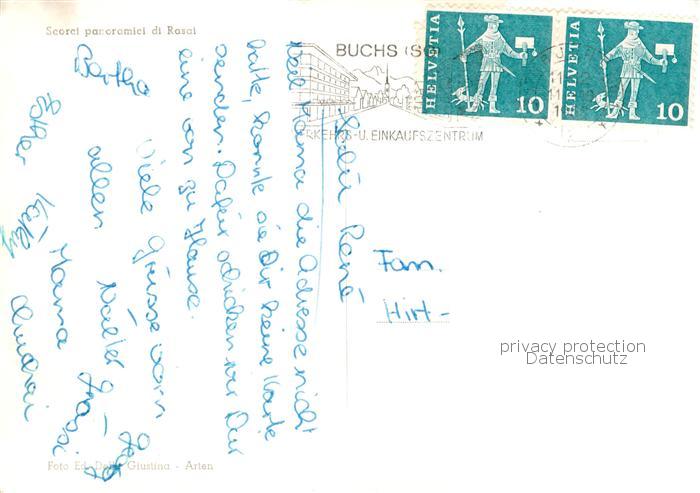 Scorci panoramici di Rasai
BUCHS (SG)
VERKEHRS-U. EINKAUFSZENTRUM
HELVETIA
10
HELVETIA
10
Liebe René
Weil Mama die Adresse nicht
hatte, konnte sie Dir keine Karte
senden. Dafür schicken wir Dir
eine von zu Hause.
Viele Grüsse vom
allen
Mama
Fam.
Hirt-
privacy protection
Datenschutz
Foto Ed. Della Giustina - Arten